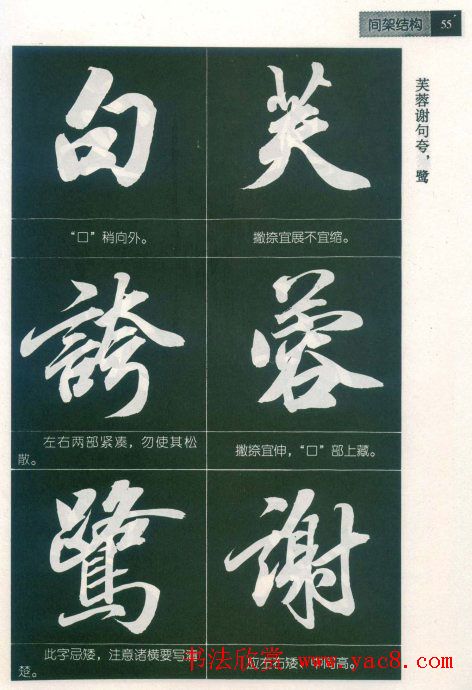 间架结构 55
芙蓉谢句夸，鹭
芙
撇捺宜展不宜缩。
蓉
撇捺宜伸，“口”部上藏。
謝
应左右矮、中间高。
句
“口”稍向外。
誇
左右两部紧凑，勿使其松
散。
鷺
此字忌矮，注意诸横要写清
楚。
书法欣赏 www.yac8.com